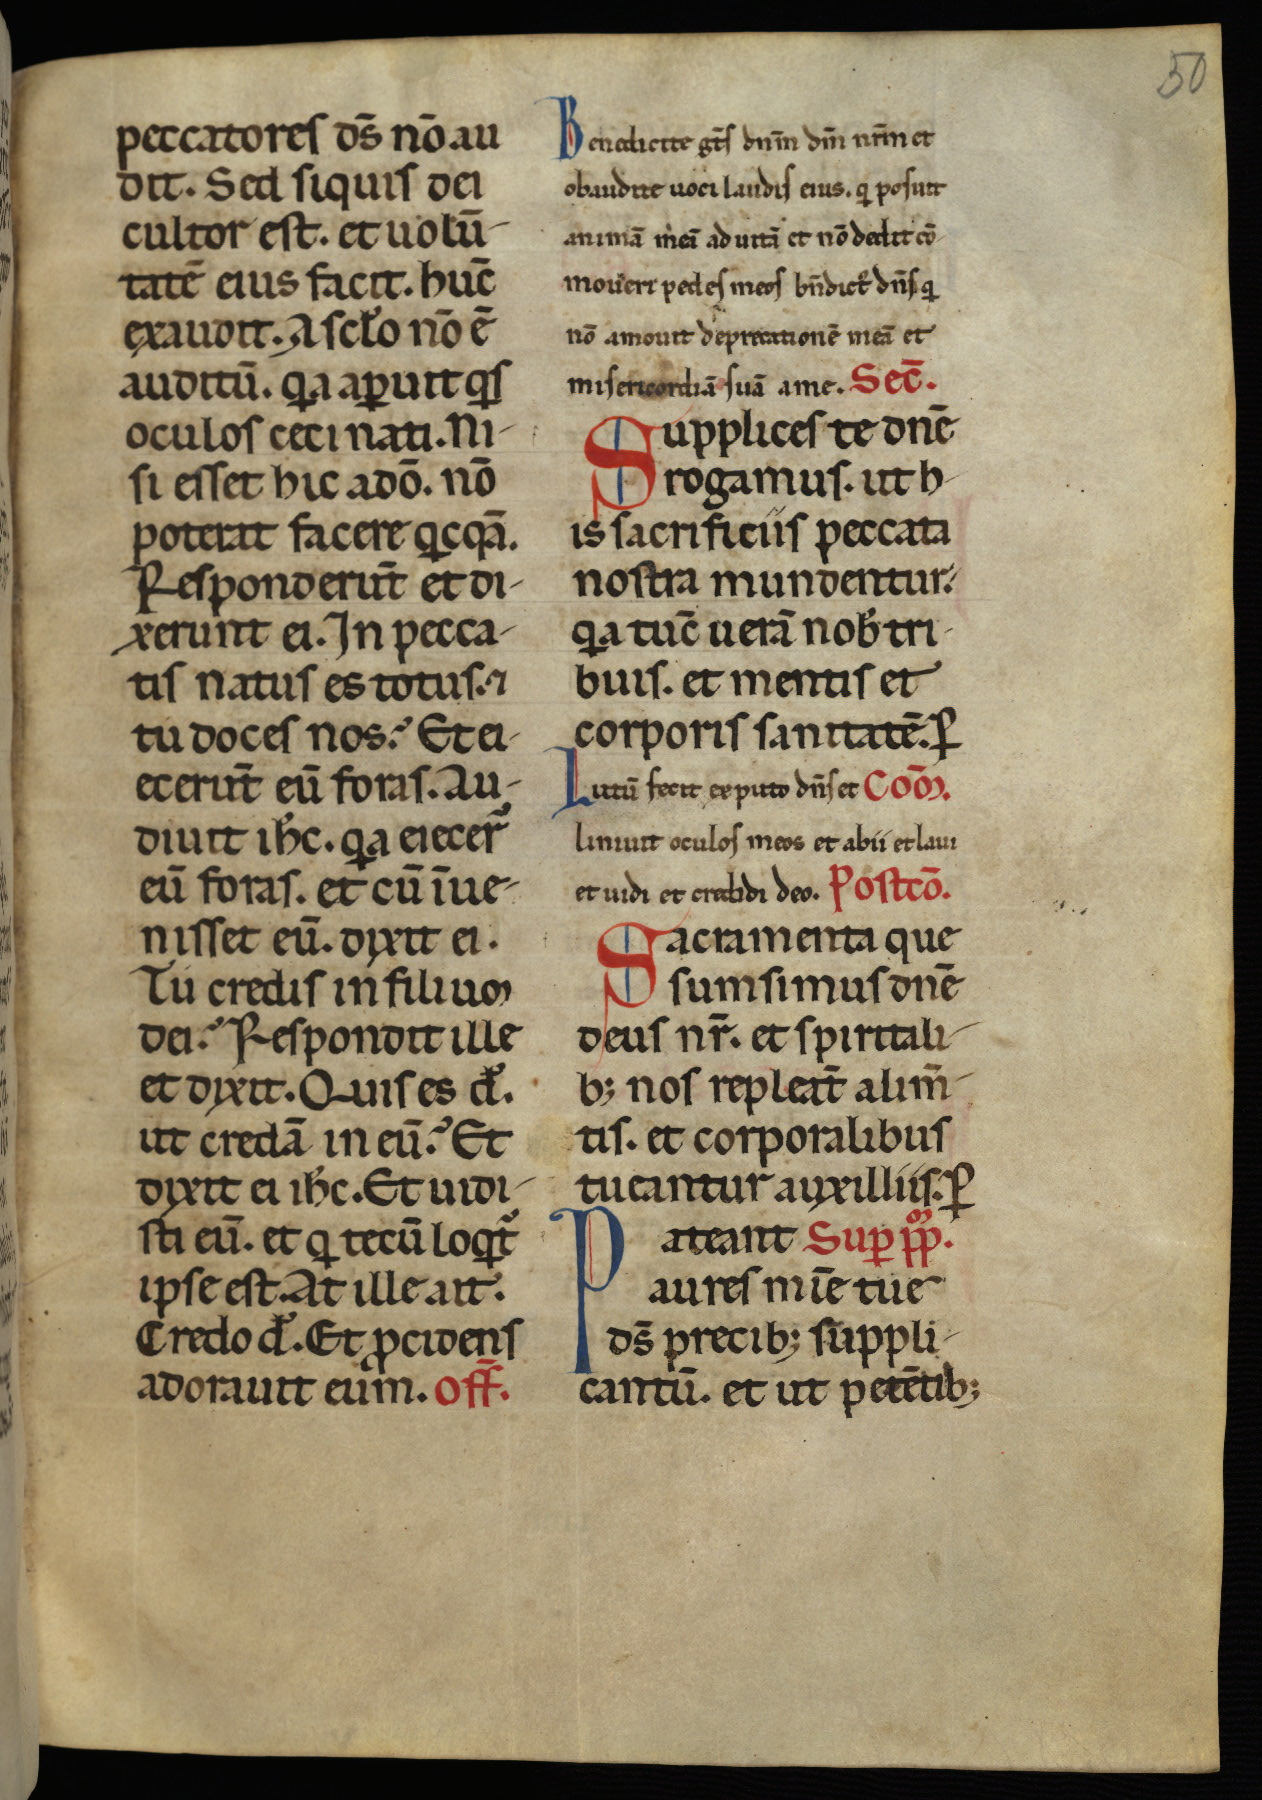 50
peccatores ds̄ nō au
dit. Sed siquis dei
cultor est. et uolū-
tatē eius facit. hūc
exaudit. A sclo nō ē
auditū. qa aperuit qs
oculos ceci nati. Ni-
si esset hic a dō. nō
poterat facere qcqā.
Responderūt et di-
xerunt ei. In pecca-
tis natus es totus. ⁊
tu doces nos? Et ei-
ecerūt eū foras. Au-
diuit ihc. qa eiecer̄
eū foras. et cū īue-
nisset eū. dixit ei.
Tu credis in filium
dei? Respondit ille
et dixit. Quis es d̄.
ut credā in eū? Et
dixit ei ihc. Et uidi-
sti eū. et q tecū loqt̄
ipse est. At ille ait.
Credo d̄. Et pcidens
adorauit eum. Off̄.
Benedicite gt̄s dnm̄ dm̄ nrm̄ et
obaudite uoci laudis eius. q posuit
animā meā ad uitā et nō dedit cō-
moueri pedes meos bn̄dict dn̄s q
nō amouit deprecationē meā et
misericordiā suā a me. Sec̄.
Supplices te dnē
rogamus. ut h-
is sacrificiis peccata
nostra mundentur.
qa tūc uerā nob tri-
buis. et mentis et
corporis sanitatē. P
Lutū fecit ex puto dn̄s et Com̄.
liniuit oculos meos et abii et laui
et uidi et credidi deo. Postcō.
Sacramenta que
sumsimus dnē
deus nr̄. et spiritali-
b; nos repleāt alim̄-
tis. et corporalibus
tueantur auxiliis. P
Pateant Sup pp̄.
aures mīe tue
ds̄ precib; suppli-
cantū. et ut petētib;